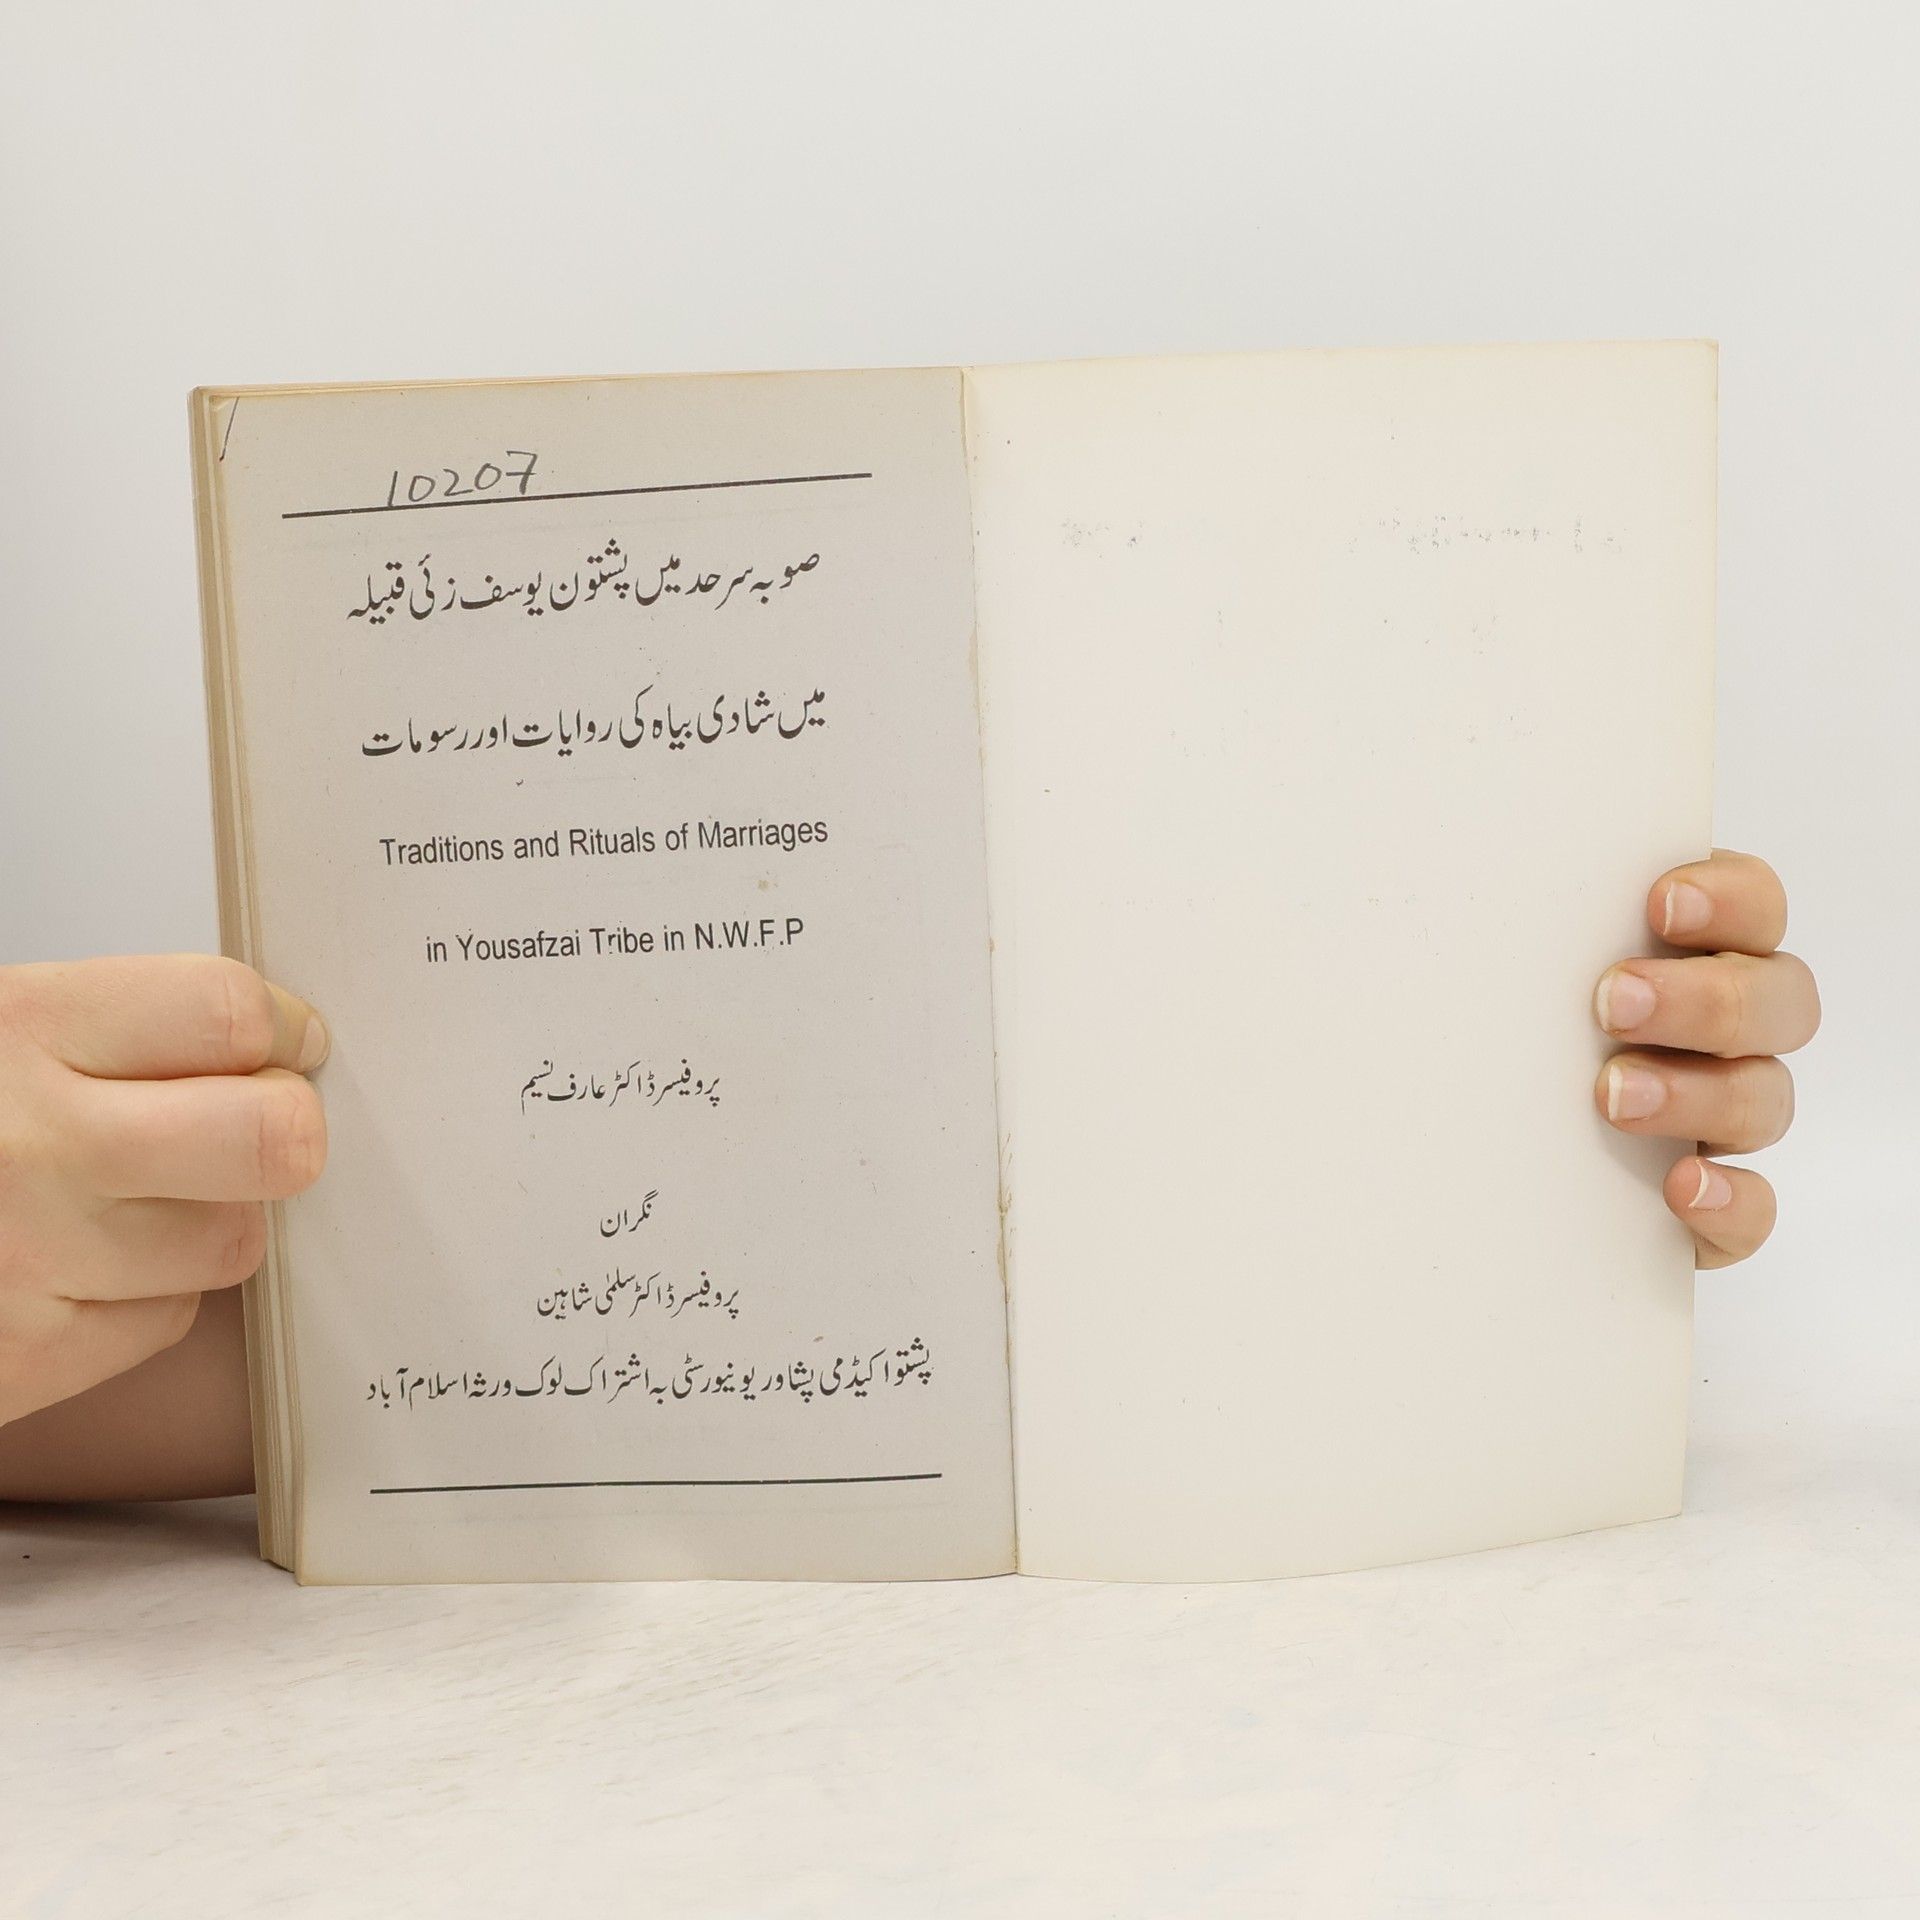 10207
صوبہ سرحد میں پشتون یوسف زئی قبیلہ
میں شادی بیاہ کی روایات اور رسومات
Traditions and Rituals of Marriages
in Yousafzai Tribe in N.W.F.P
پروفیسر ڈاکٹر عارف نسیم
نگران
پروفیسر ڈاکٹر سلمیٰ شاہین
پشتو اکیڈمی پشاور یونیورسٹی بہ اشتراک لوک ورثہ اسلام آباد